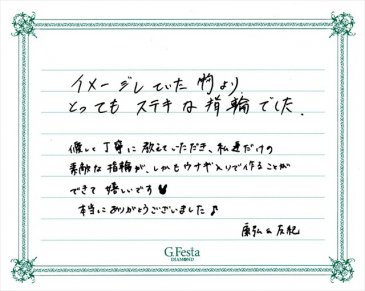 イメージしていた物より
とっても ステキな指輪でした.
優しく丁寧に教えていただき、私達だけの
素敵な指輪が、しかもウナギ入りで作ることが
できて 嬉しいです♥
本当にありがとうございました♪
康弘 & 友紀
G.Festa
DIAMOND